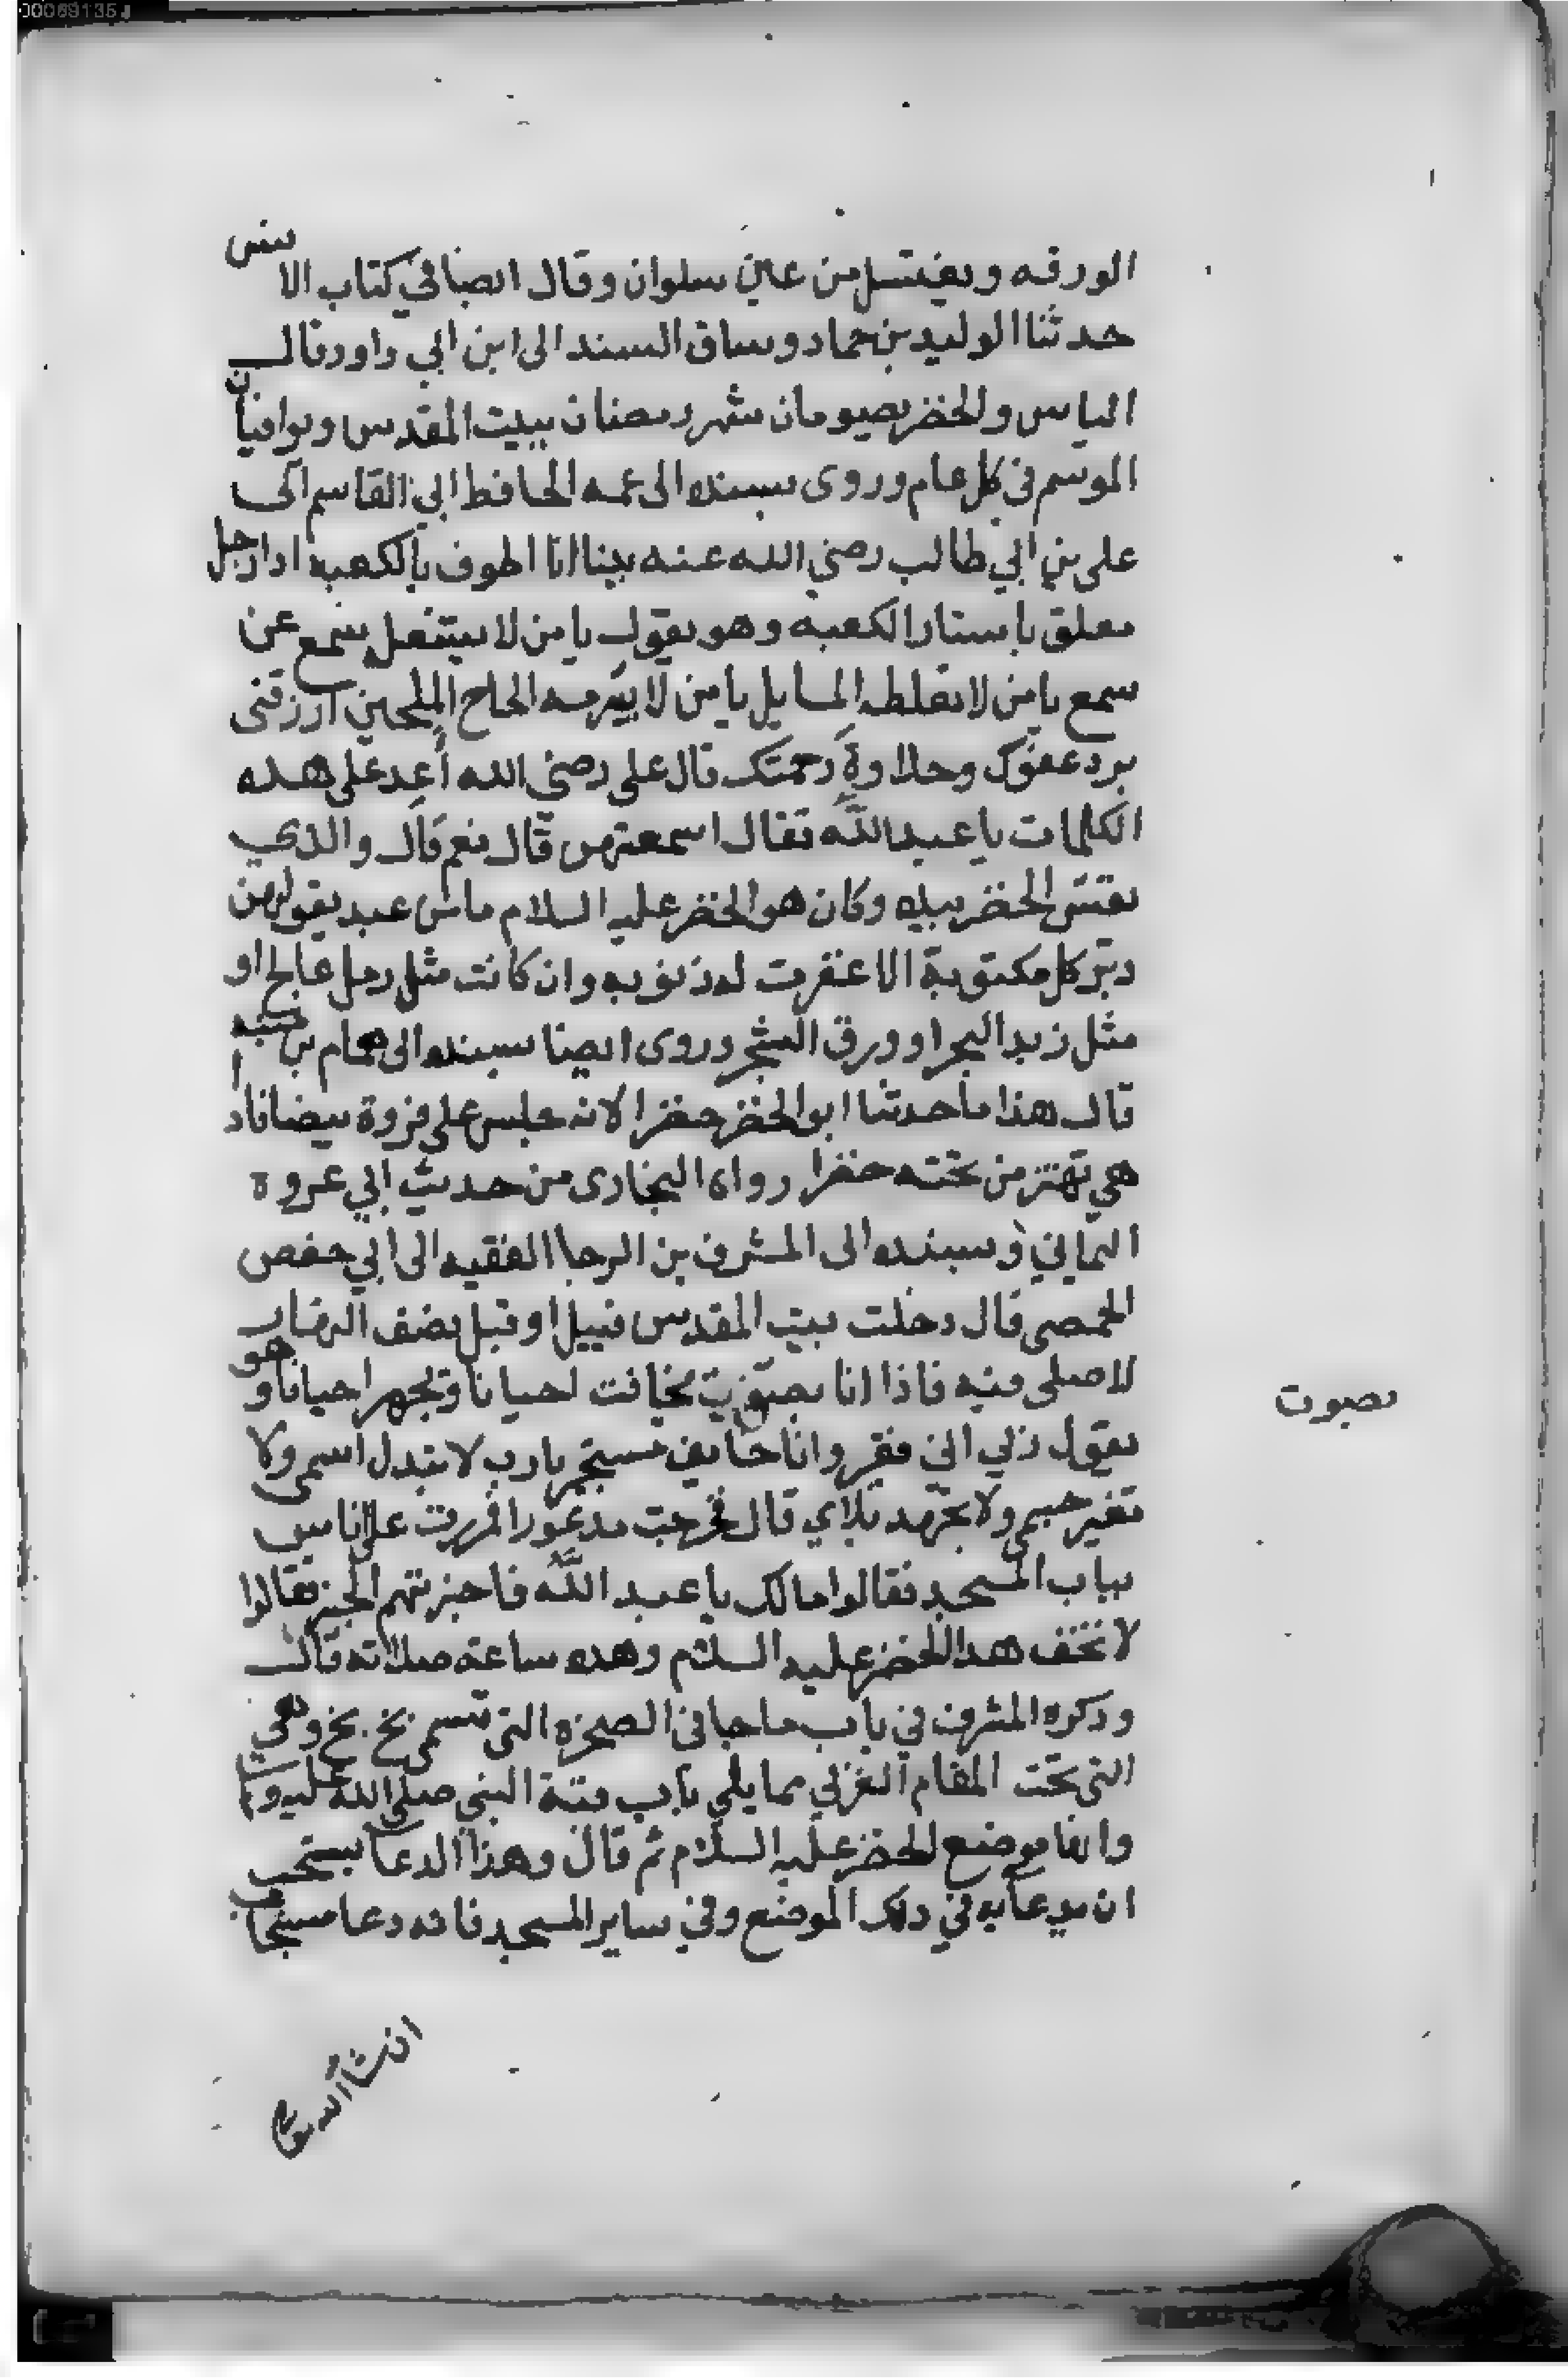 الورقه ويغتسل من عين سلوان وقال ايضا في كتاب الانس
حدثنا الوليد بن حماد وساق السند الى ابن ابي داود قال
الياس والخضر يصومان شهر رمضان ببيت المقدس ويوافيان
الموسم في كل عام وروى بسنده الى عمه الحافظ ابي القاسم الى
علي بن ابي طالب رضي الله عنه بينا انا اطوف بالكعبه اذا رجل
معلق باستار الكعبه وهو يقول يا من لا يشغله سمع عن
سمع يا من لا تغلطه المسايل يا من لا يبرمه الحاح الملحين ارزقني
برد عفوك وحلاوة رحمتك قال علي رضي الله أعد علي هذه
الكلمات يا عبد الله فقال اسمعتهن قال نعم قال والذي
نفس الخضر بيده وكان هو الخضر عليه السلام ما من عبد يقولهن
دبر كل مكتوبة الا غفرت له ذنوبه وان كانت مثل رمل عالج او
مثل زبد البحر او ورق الشجر وروى ايضا بسنده الى همام بن منبه
قال هذا ما حدثنا ابو الخضر خضرا لانه جلس على فروة بيضا فاذا
هي تهتز من تحته خضرا رواه البخاري من حديث ابي عروة
اليماني وبسنده الى المشرف بن المرجا الفقيه الى ابي حفص
الحمصي قال دخلت بيت المقدس قبيل او قبل نصف النهار
لاصلي فيه فاذا انا بصوت يخافت احيانا ويجهر احيانا وهو
يقول رب اني فقير وانا خايف مستجير يا رب لا تبدل اسمي ولا
تغير جسمي ولا تجهد بلاي قال فخرجت مذعورا فمررت على اناس
بباب المسجد فقالوا مالك يا عبد الله فاخبرتهم الخبر فقالوا
لا تخف هذا الخضر عليه السلام وهذه ساعة صلاته قال
وذكره المشرف في باب ما جا في الصخرة التي تسمى بخ بخ وهي
التي تحت المقام الغربي مما يلي باب قبة النبي صلى الله عليه وسلم
وانها موضع الخضر عليه السلام ثم قال وهذا الدعا يستحب
ان يدعا به في ذلك الموضع وفي ساير المسجد فانه دعا مستجاب
ان شا الله تعالى
بصوت